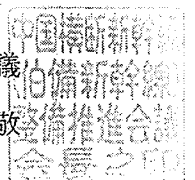 議
敬
中国横断新幹線
伯備新幹線
整備推進会議
会長之印